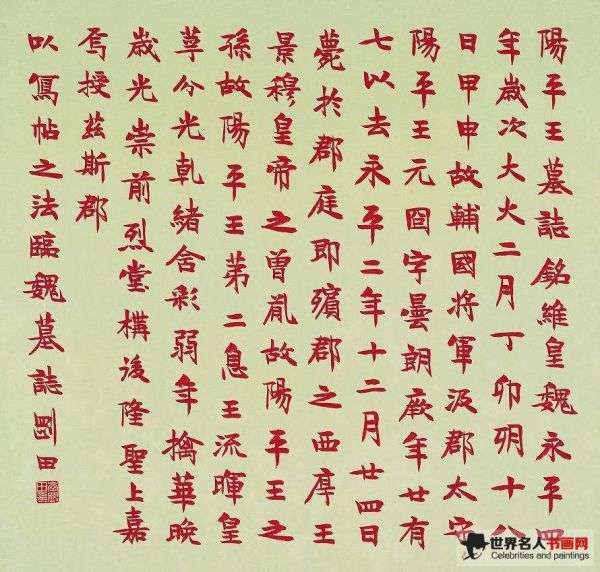 陽平王墓誌銘維皇魏永平四
年歲次大火二月丁卯朔十八
日甲申故輔國將軍汲郡太守
陽平王元冏字曇朗厥年廿有
七以去永平二年十二月廿四日
薨於郡庭即殯郡之西序王
景穆皇帝之曾胤故陽平王之
孫故陽平王苐二息王流暉皇
萼分光乹緒含彩弱年擒華晚
歲光崇前烈堂構後隆聖上嘉
焉授茲斯郡
以寫帖之法臨魏墓誌劉田
世界名人书画网
Celebrities and paintings